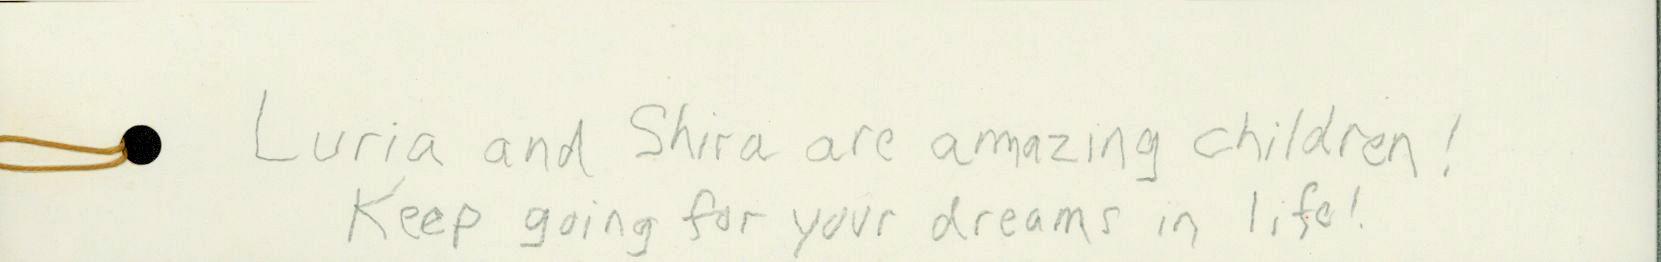 Luria and Shira are amazing children!
Keep going for your dreams in life!